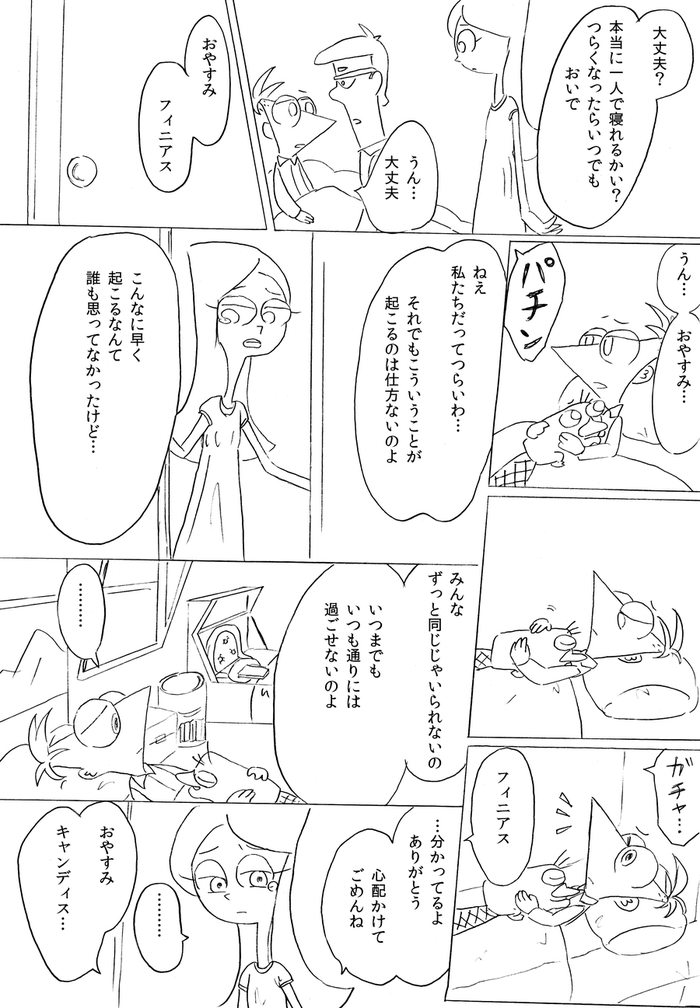 大丈夫?
本当に一人で寝れるかい?
つらくなったらいつでも
おいで
うん…
大丈夫
おやすみ
フィニアス
うん…
おやすみ…
パチン
ねえ
私たちだってつらいわ…
それでもこういうことが
起こるのは仕方ないのよ
こんなに早く
起こるなんて
誰も思ってなかったけど…
ガチャ…
フィニアス
みんな
ずっと同じじゃいられないの
いつまでも
いつも通りには
過ごせないのよ
………
…分かってるよ
ありがとう
心配かけて
ごめんね
………
おやすみ
キャンディス…